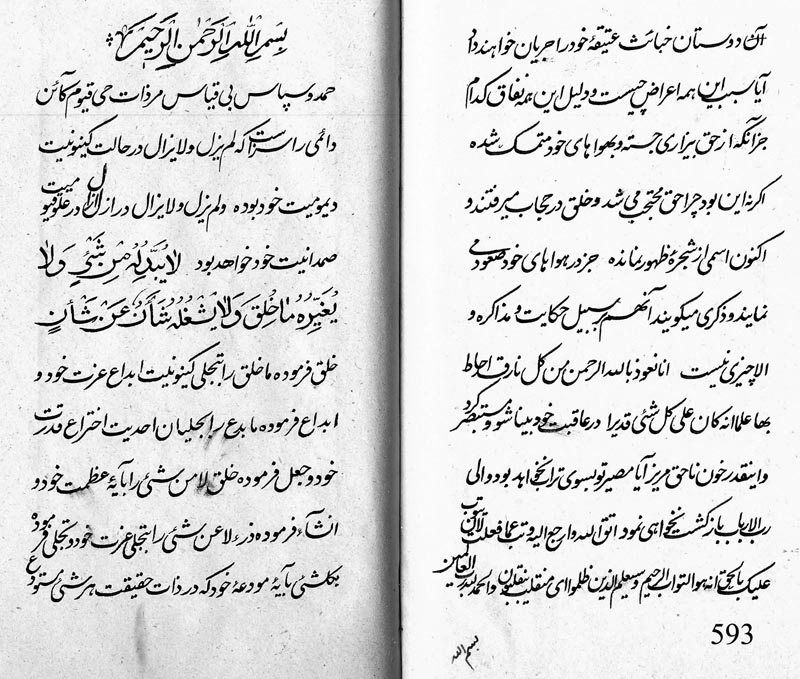 آن دوستان خباثت عتیقهٔ خود را جریان خواهند داد
آیا سبب این همه اعراض چیست و دلیل این همه نفاق کدام
جز آنکه از حق بیزاری جسته و بهواهای خود متمسک شده
اگر نه این بود چرا حق محتجب می شد و خلق در حجاب میرفتند و
اکنون اسمی از شجرهٔ ظهور نمانده جز در هواهای خود صعود می
نمایند و ذکری میکویند آنهم بر سبیل حکایت و مذاکره و
الا چیزی نیست انا نعوذ بالله الرحمن من کل نار قد احاط
بها علما انه کان علی کل شئی قدیرا در عاقبت خود بینا شو و مستبصر کرد
و اینقدر خون ناحق مریز آیا مصیر تو بسوی تراب نخواهد بود و الی
رب الارباب بازکشت نخواهی نمود اتق الله و ارجع الیه و تب عما فعلت لیتوب
علیک بالحق انه هو التواب الرحیم و سیعلم الذین ظلموا ای منقلب ینقلبون و الحمد لله رب العالمین
593
بسم الله
بسم الله الرحمن الرحیم
حمد و سپاس بی قیاس مر ذات حی قیوم کائن
دائمی را سزاست که لم یزل و لا یزال در حالت کینونیت
دیمومیت خود بوده و لم یزل و لا یزال در ازل ازال در علو قیومیت
صمدانیت خود خواهد بود لا یبدله من شئی و لا
یغیره ما خلق و لا یشغله شأن عن شأن
خلق فرموده ما خلق را بتجلی کینونیت ابداع عزت خود و
ابداع فرموده ما بدع را بجلیان احدیت اختراع قدرت
خود و جعل فرموده خلق لا من شئی را بآیهٔ عظمت خود و
انشاء فرموده ذرء لا عن شئی را بتجلی عزت خود و تجلی فرموده
بکلشئی بآیهٔ مودعهٔ خود که در ذات حقیقت هر شئی مستودع